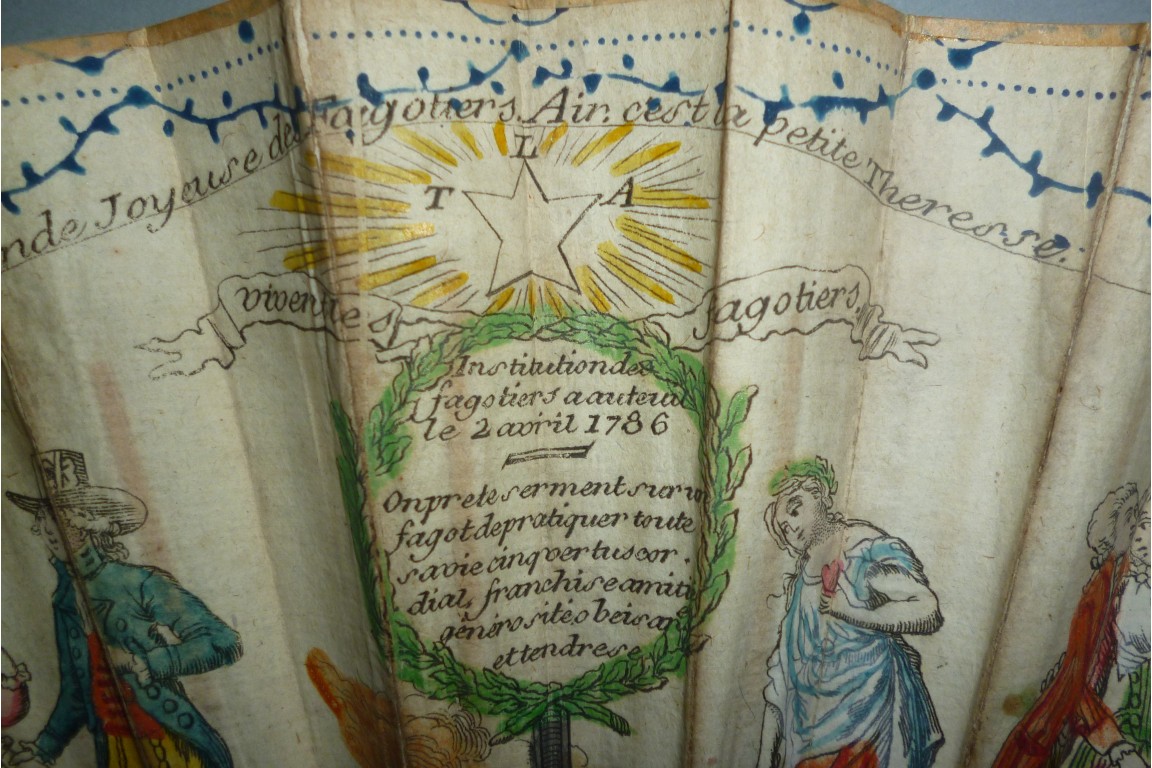 nde Joyeuse des Fagotiers. Air. cest la petite Theresse.
L
T A
vivent les fagotiers
Institution des
fagotiers a auteuil
le 2 avril 1786
On prete serment sur un
fagot de pratiquer toute
sa vie cinq vertus cor.
dial, franchise amiti
générosité, obeisan
et tendresse